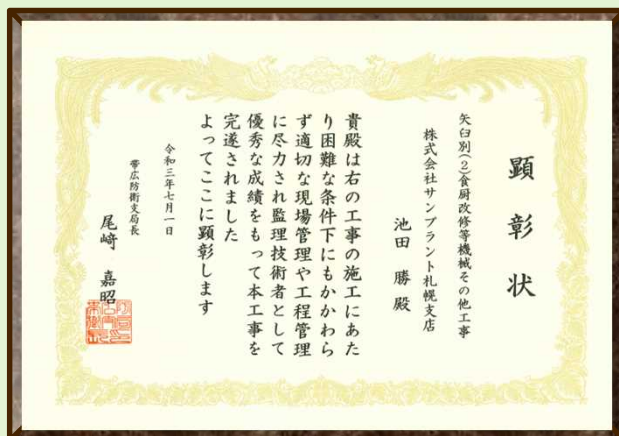 顕彰状
矢臼別(2)食厨改修等機械その他工事
株式会社サンプラント札幌支店
池田 勝 殿
貴殿は右の工事の施工にあた
り困難な条件下にもかかわら
ず適切な現場管理や工程管理
に尽力され監理技術者として
優秀な成績をもって本工事を
完遂されました
よってここに顕彰します
令和三年七月一日
帯広防衛支局長
尾﨑 嘉昭